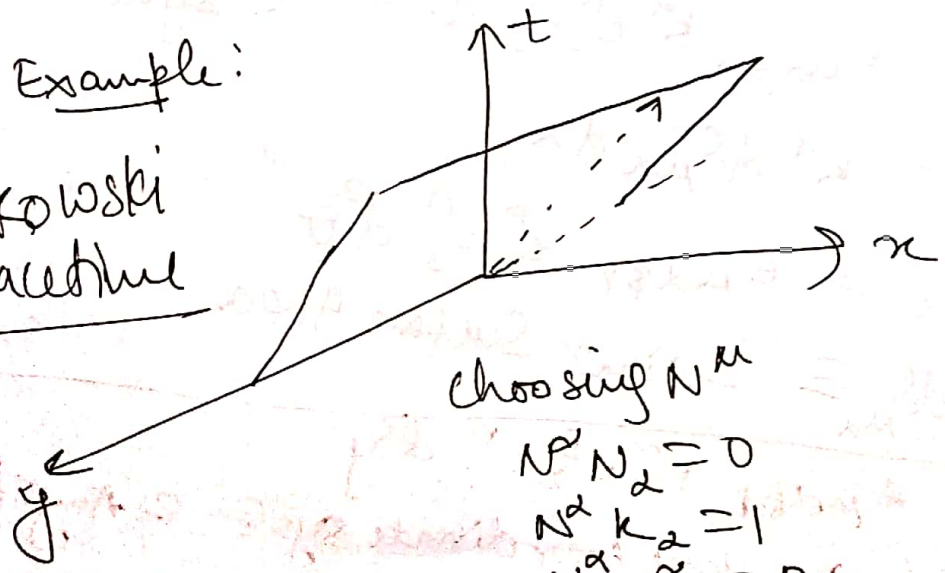 Example:
t
kowski
acetime
x
choosing N^μ
N^α N_α = 0
N^α k_α = 1
y